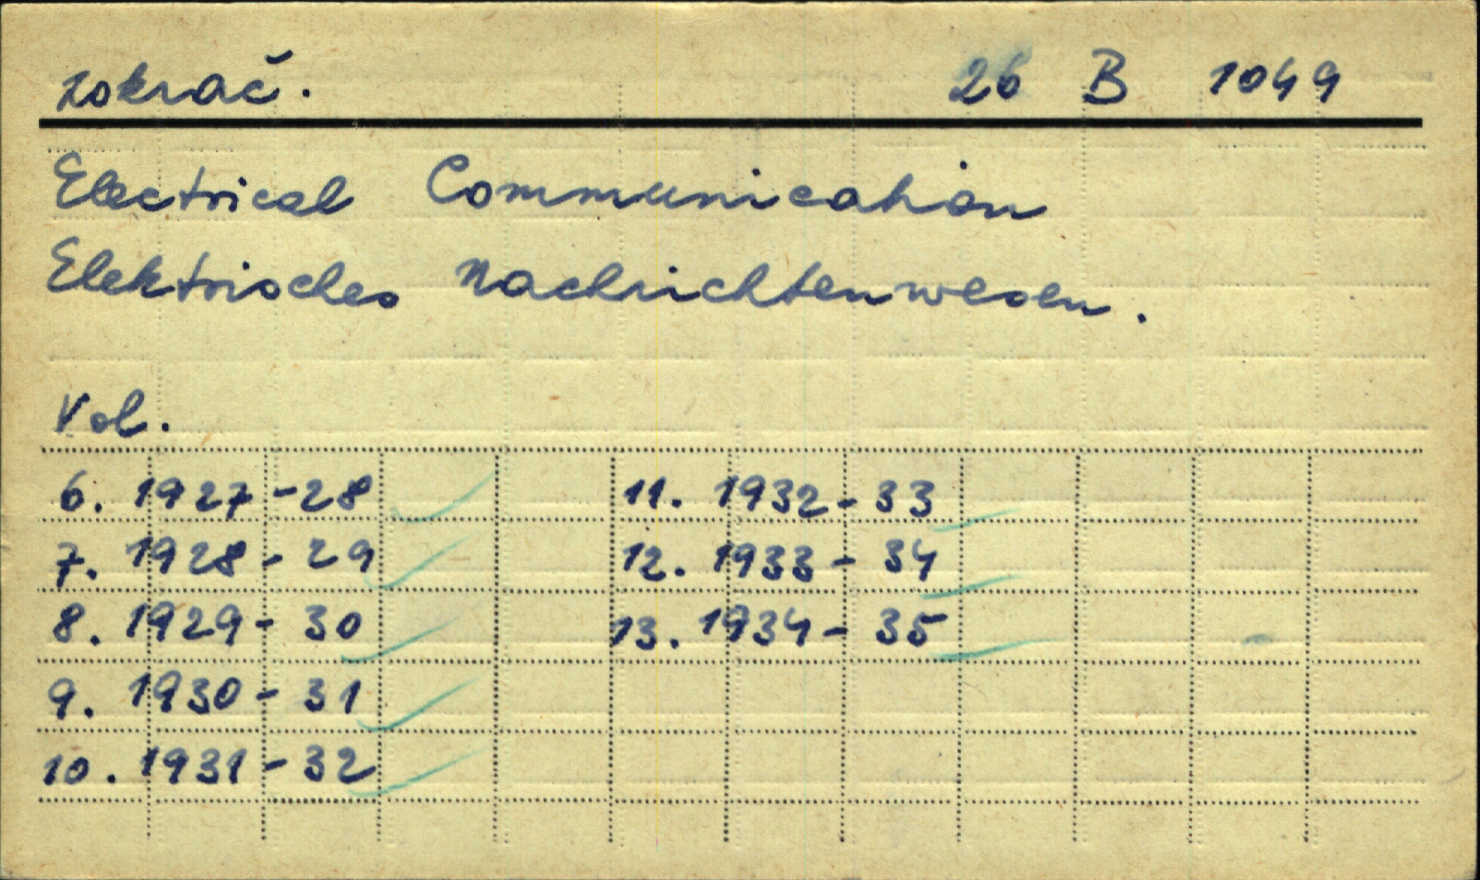 zokrač. 26 B 1049
Electrical Communication
Elektrisches Nachrichtenwesen.
Vol.
6. 1927-28 11. 1932-33
7. 1928-29 12. 1933-34
8. 1929-30 13. 1934-35
9. 1930-31
10. 1931-32